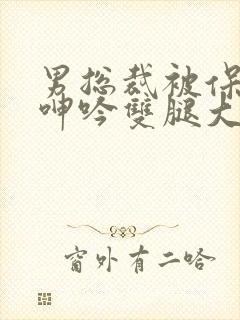 男总裁被保
呻吟雙腿大
窗外有二哈